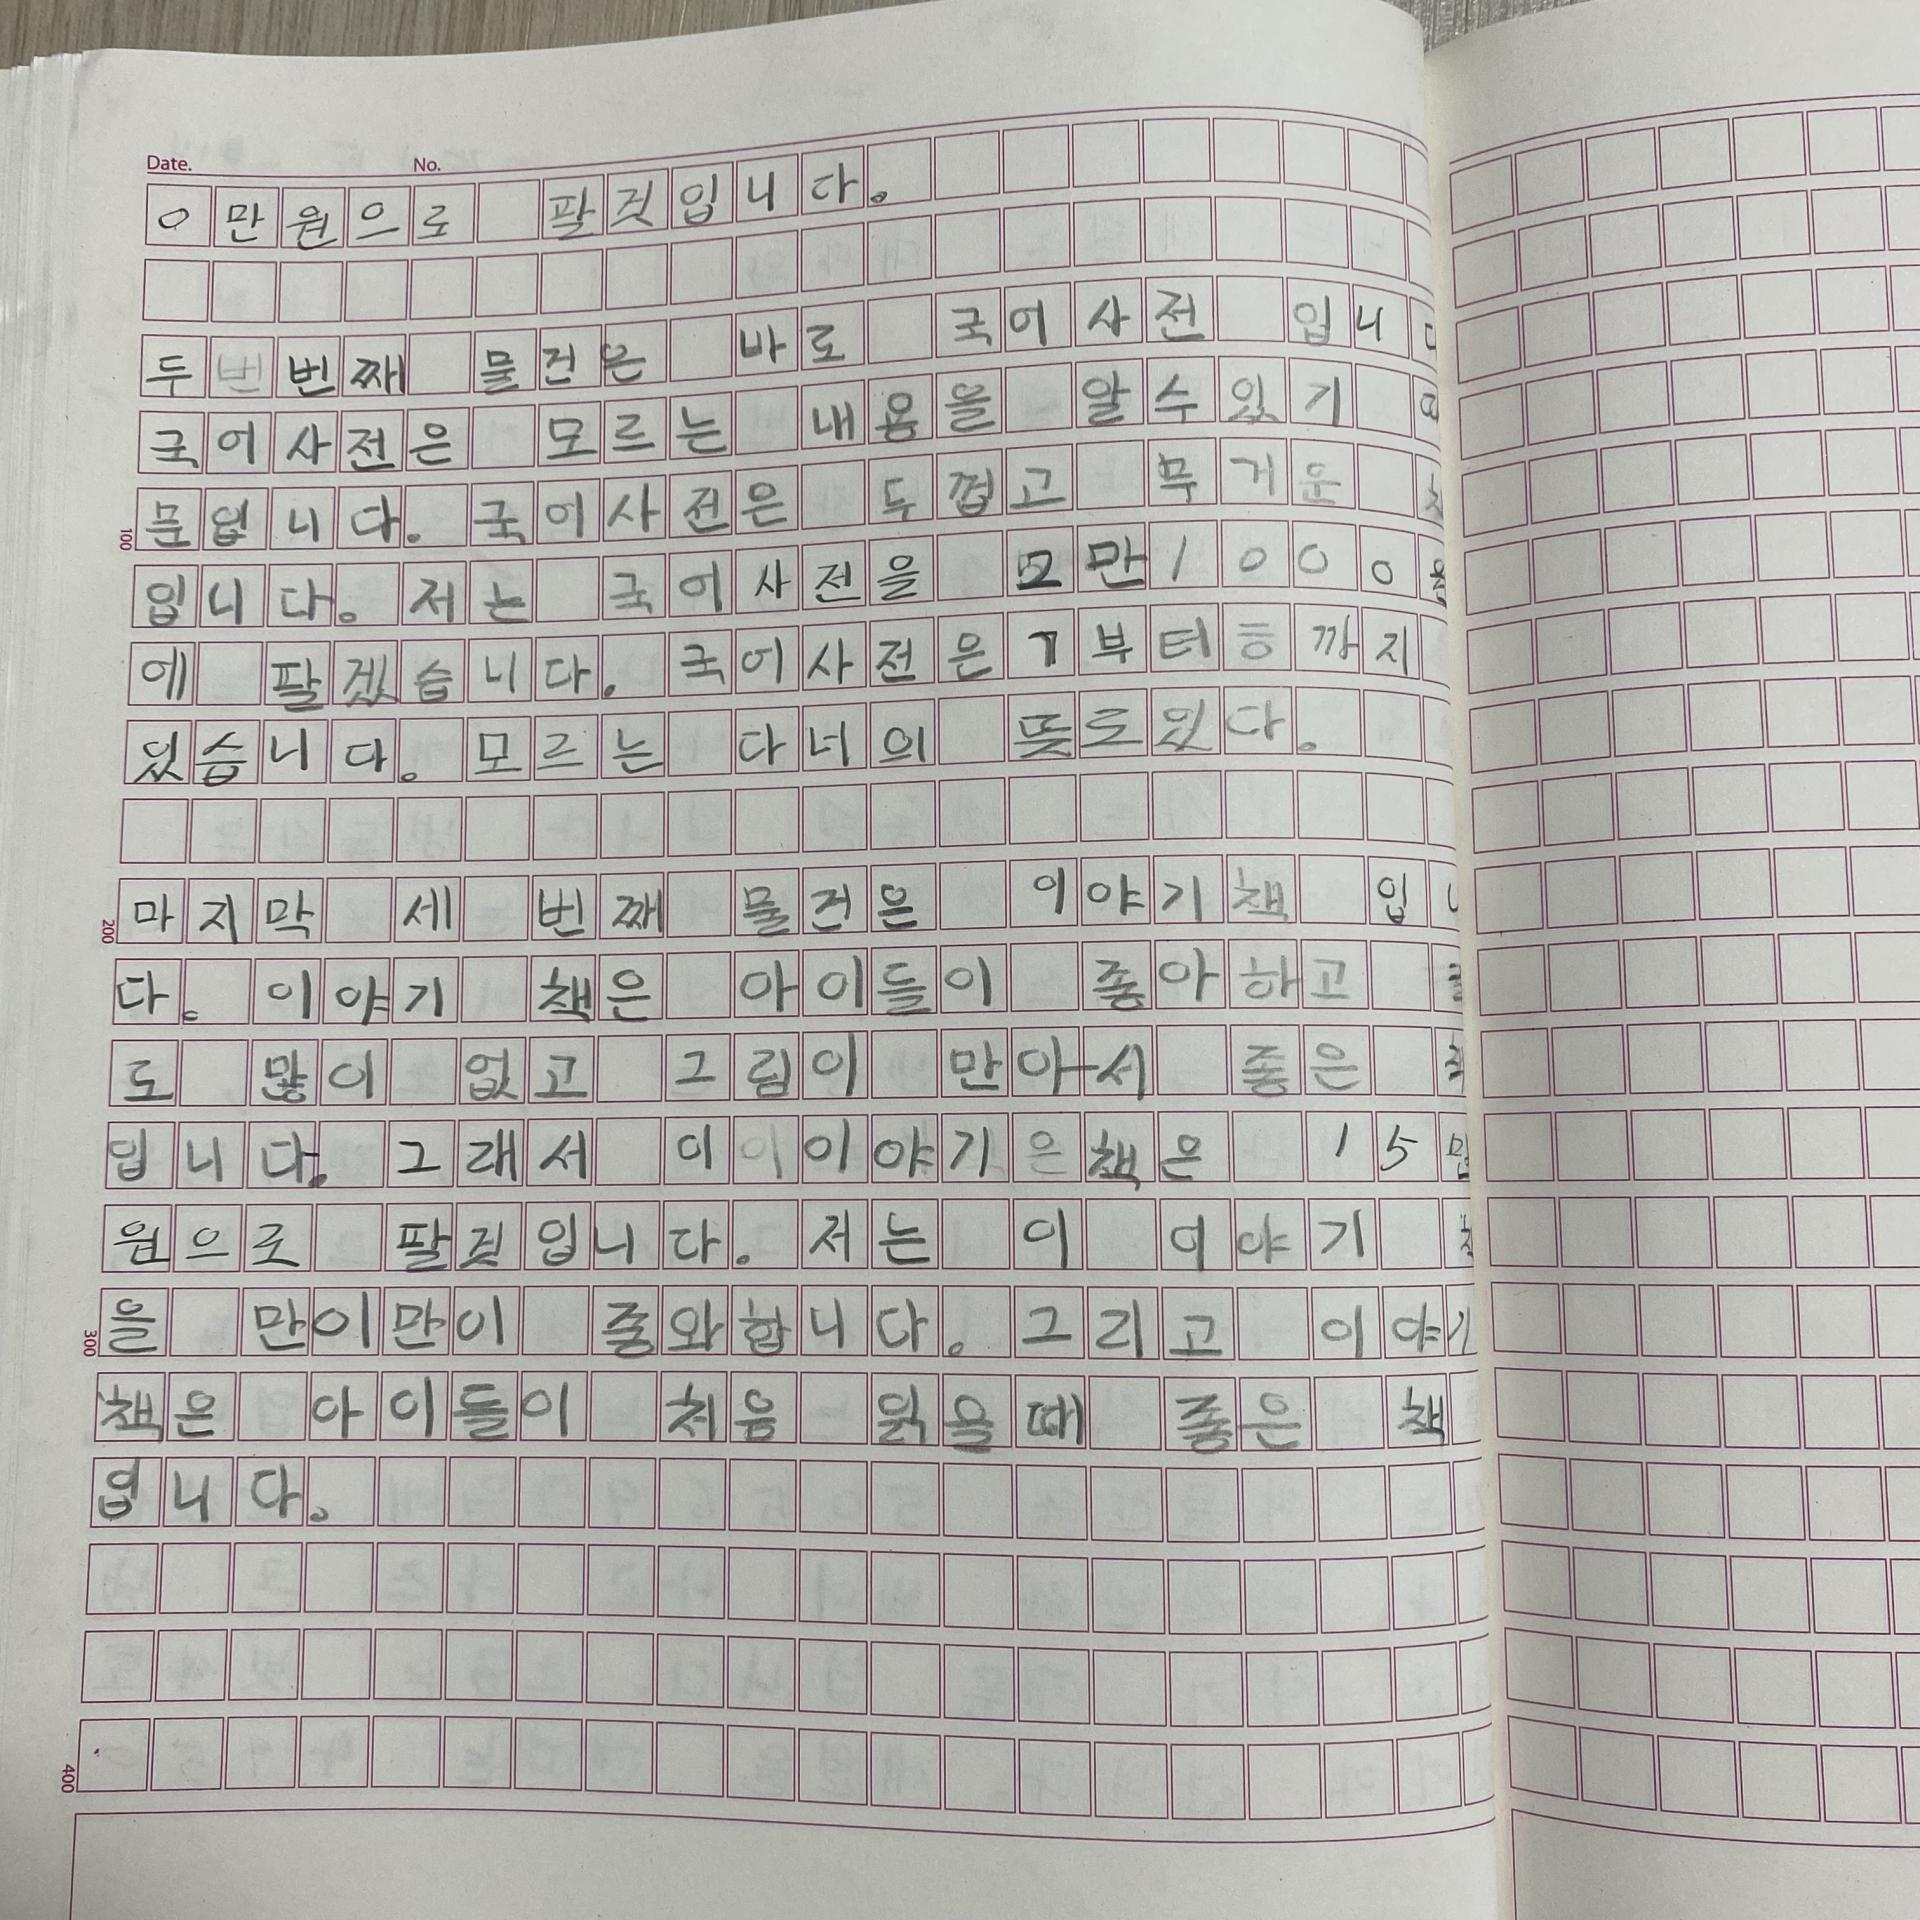 Date. No.
0만원으로 팔것입니다.
두번번째 물건은 바로 국어사전 입니
국어사전은 모르는 내용을 알수있기
문입니다. 국어사전은 두껍고 무거운
100
입니다. 저는 국어사전을 2만1000원
에 팔겠습니다. 국어사전은 ㄱ부터 ㅎ까지
있습니다. 모르는 다너의 뜻도있다.
마지막 세 번째 물건은 이야기책 입니
200
다. 이야기 책은 아이들이 좋아하고
도 많이 없고 그림이 만아서 좋은
입니다. 그래서 이이이야기은책은 15만
원으로 팔것입니다. 저는 이 이야기
을 만이만이 좋와합니다. 그리고 이야기
300
책은 아이들이 처음 읽을때 좋은 책
입니다.
400